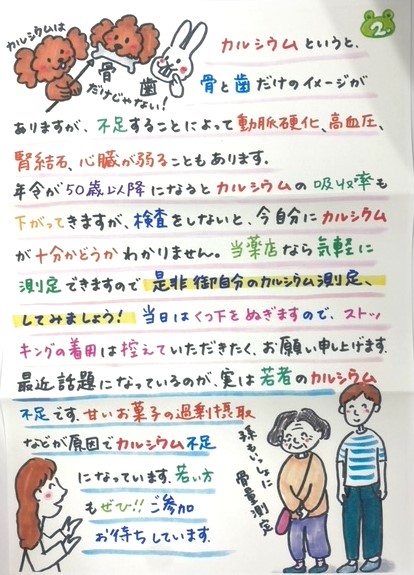 2.
カルシウムは
骨 歯
だけじゃない!
カルシウムというと、
骨と歯だけのイメージが
ありますが、不足することによって動脈硬化、高血圧、
腎結石、心臓が弱ることもあります。
年令が50歳以降になるとカルシウムの吸収率も
下がってきますが、検査をしないと、今自分にカルシウム
が十分かどうかわかりません。当薬店なら気軽に
測定できますので是非御自分のカルシウム測定、
してみましょう! 当日はくつ下をぬぎますので、ストッ
キングの着用は控えていただきたく、お願い申し上げます。
最近話題になっているのが、実は若者のカルシウム
不足です。甘いお菓子の過剰摂取
などが原因でカルシウム不足
になっています。若い方
もぜひ!!ご参加
お待ちしています。
孫もいっしょに
骨量測定